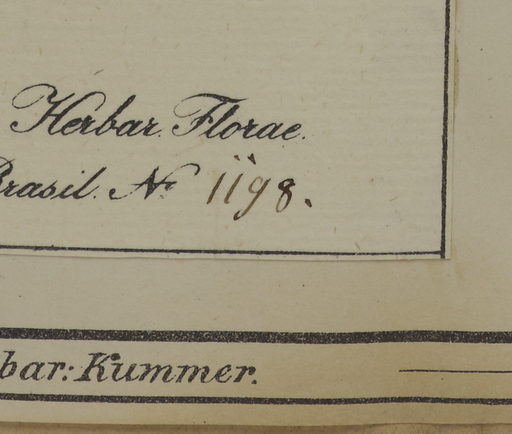 Herbar. Florae.
Brasil. No 1198.
bar: Kummer.